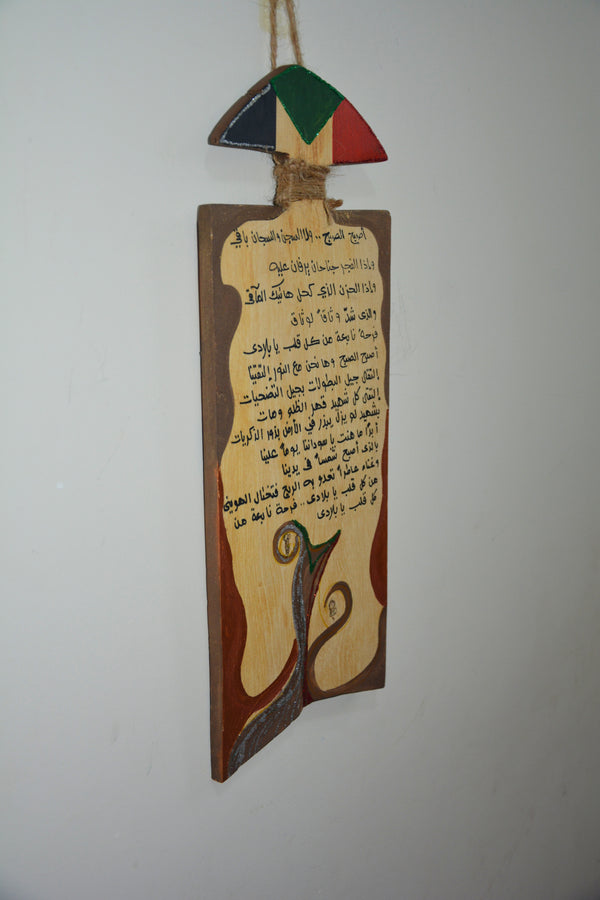 أصبح الصبح .. ولا السجن والسجان باقي
وإذا الفجر جناحان يرفان عليه
وإذا الحزن الذي كحل هاتيك المآقي
والذي شدّ وثاقاً لوثاق
فرحة نابعة من كل قلب يا بلادى
أصبح الصبح وها نحن مع النور إلتقينا
إلتقى جيل البطولات بجيل التضحيات
إلتقى كل شهيد قهر الظلم ومات
بشهيد لم يزل يبذر في الأرض بذور الذكريات
أبداً ما هنت يا سوداننا يوماً علينا
بالذى أصبح شمساً في يدينا
وغناء عاطراً تعدو به الريح فتختال الهوينى
من كل قلب يا بلادى .. فرحة نابعة من
كل قلب يا بلادى